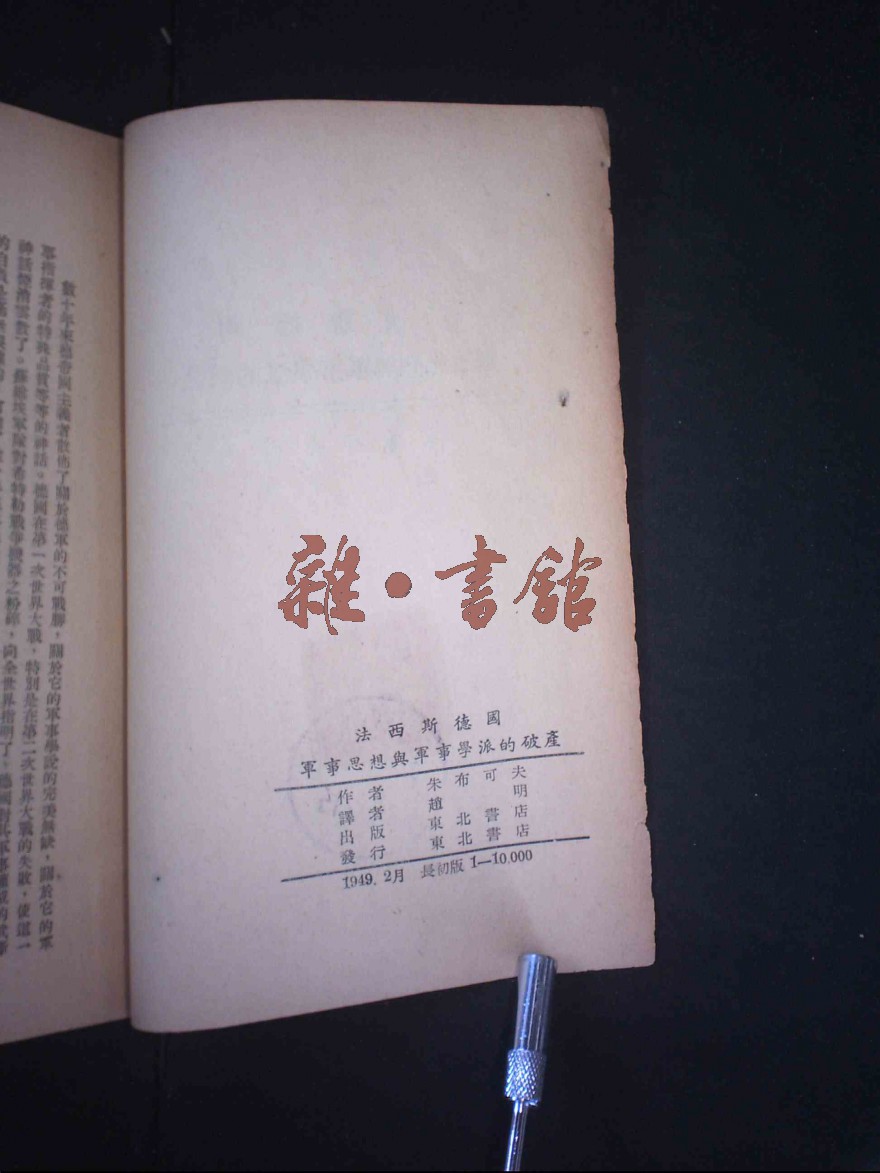 數十年來德帝國主義者散佈了關於德軍的不可戰勝,關於它的軍事學說的完美無缺,關於它的軍
事指揮者的特殊品質等等的神話。德國在第一次世界大戰,特別是在第二次世界大戰的失敗,使這一
神話煙消雲散了。蘇維埃軍隊對希特勒戰爭機器之粉碎,向全世界指明了
雜・書館
法西斯德國
軍事思想與軍事學派的破產
作者 朱布可夫
譯者 趙明
出版 東北書店
發行 東北書店
1949.2月 長初版 1—10.000